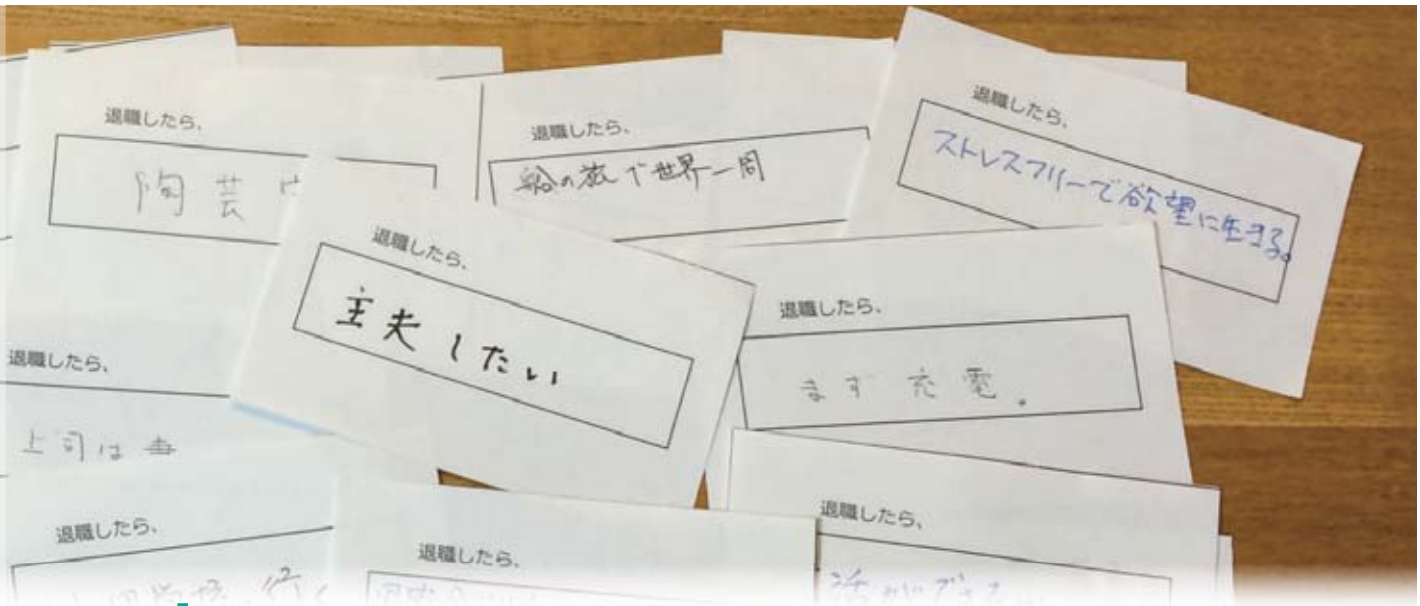 退職したら、
陶芸
退職したら、
船の旅で世界一周
退職したら、
ストレスフリーで欲望に生きる。
退職したら、
主夫したい
退職したら、
まず充電。
退職したら、
上司は妻
退職したら、
行く
退職したら、
退職したら、
活ができる